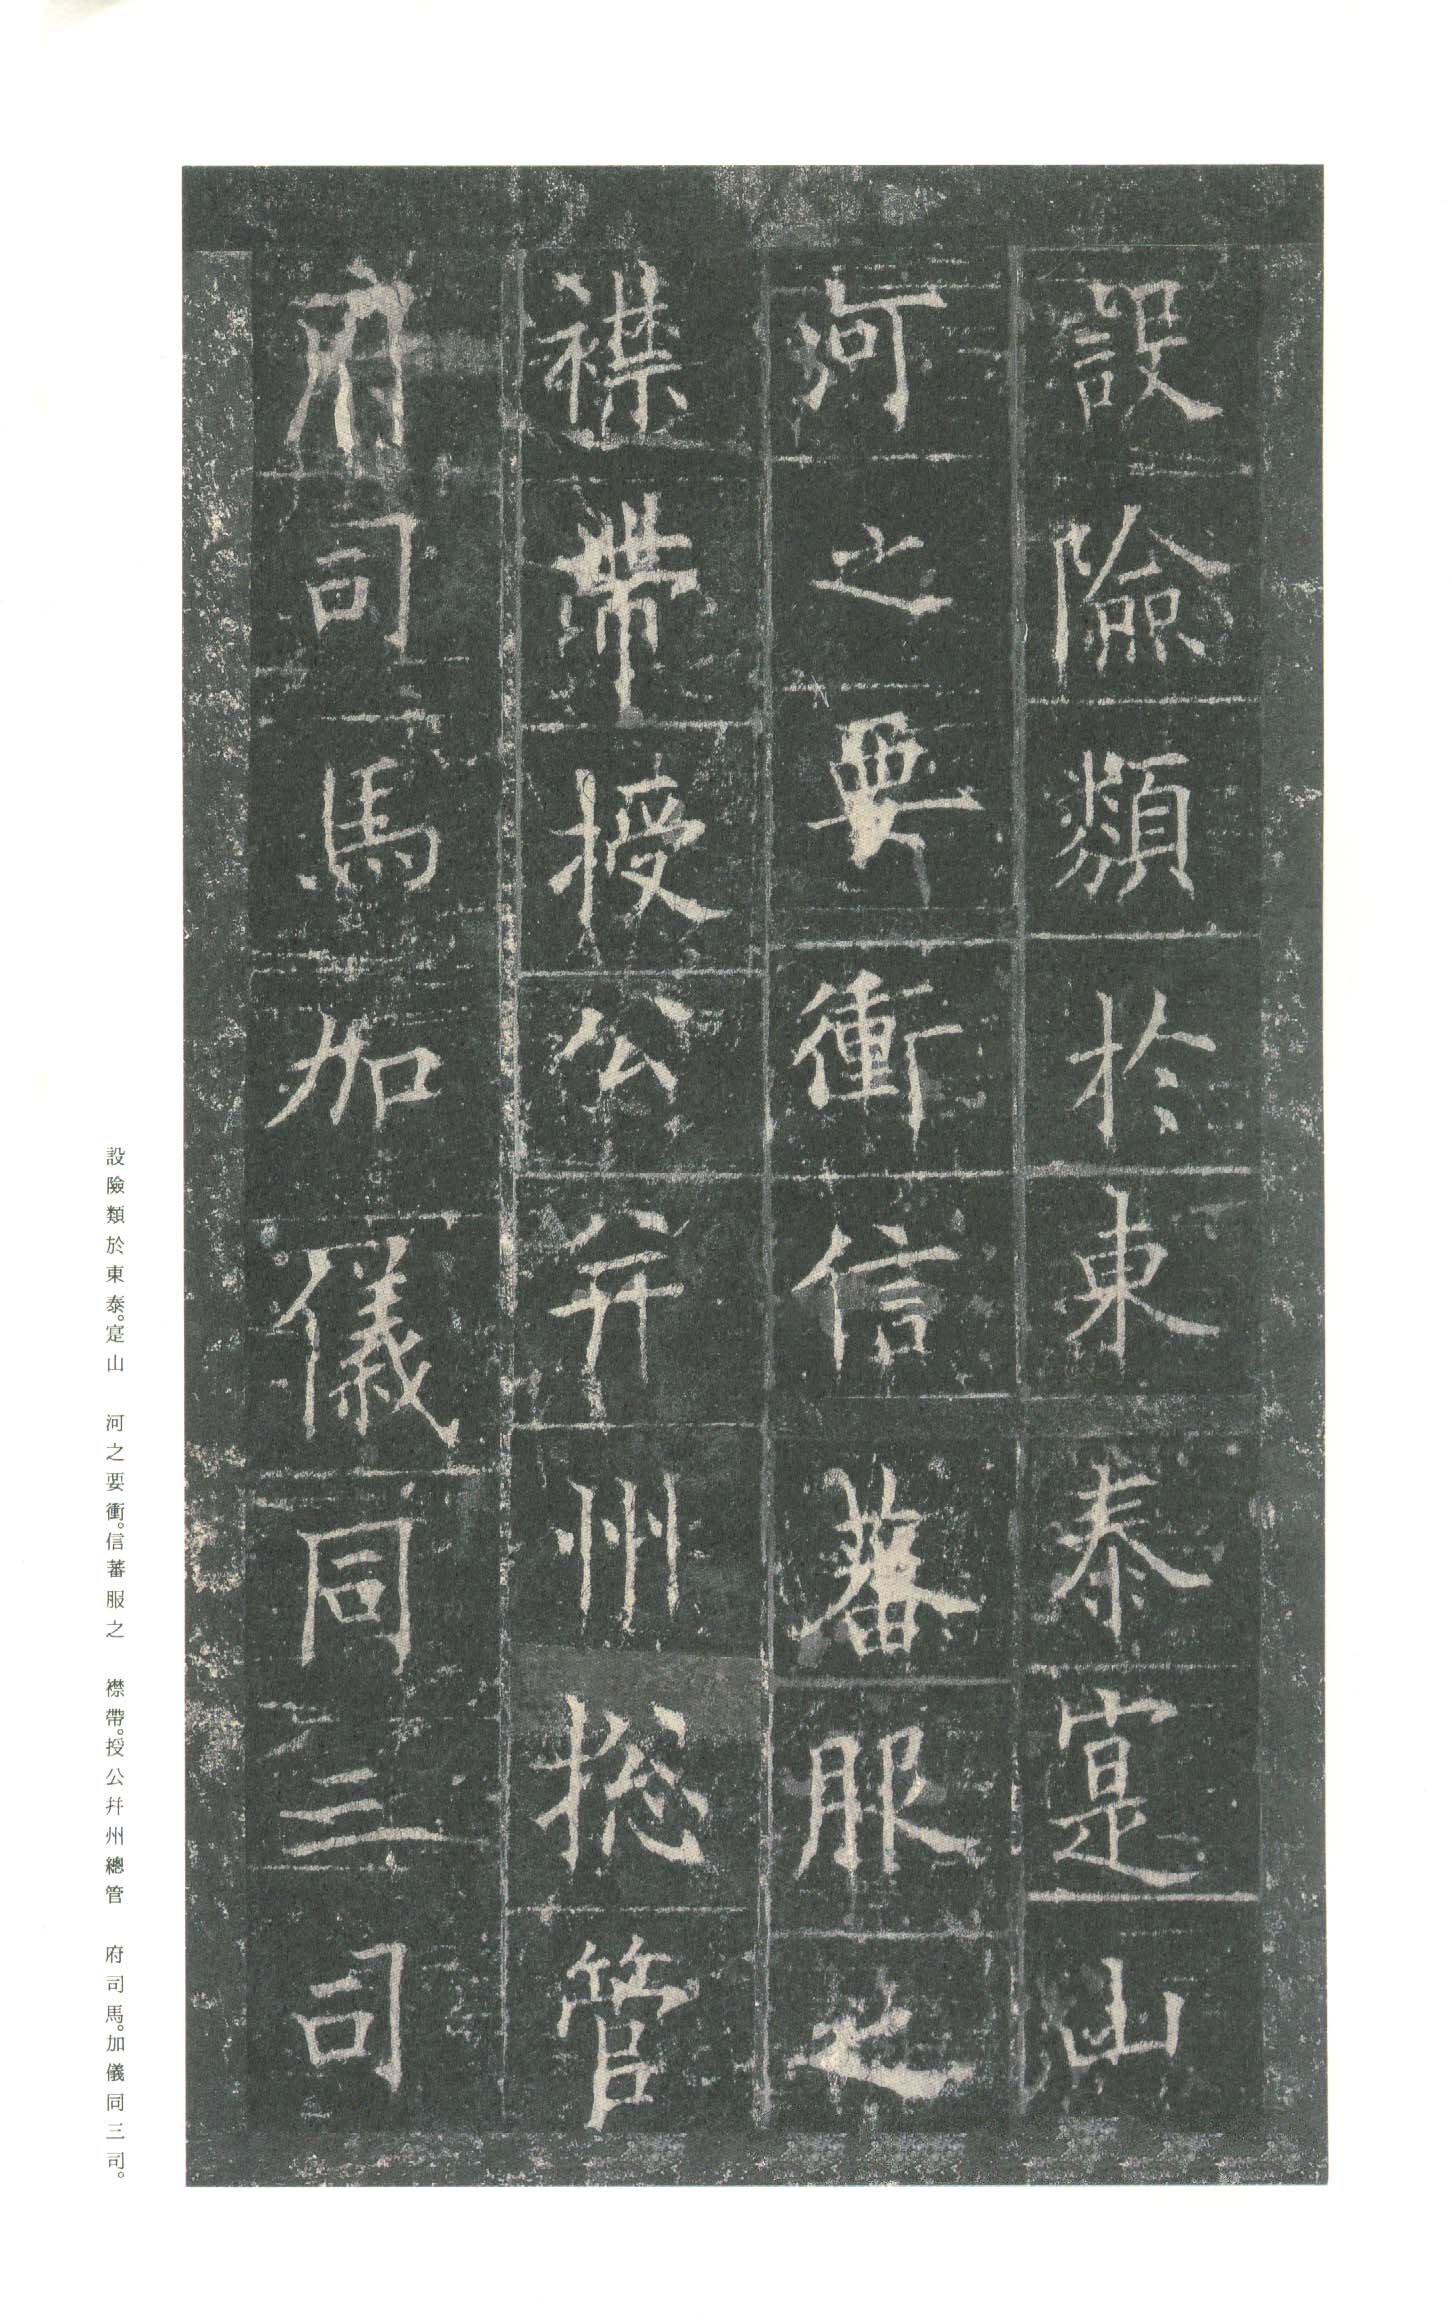 設險類於東泰寔山
河之要衝信蕃服之
襟帶授公幷州揔管
府司馬加儀同三司
設險類於東泰。寔山　河之要衝。信蕃服之　襟帶。授公幷州總管　府司馬。加儀同三司。